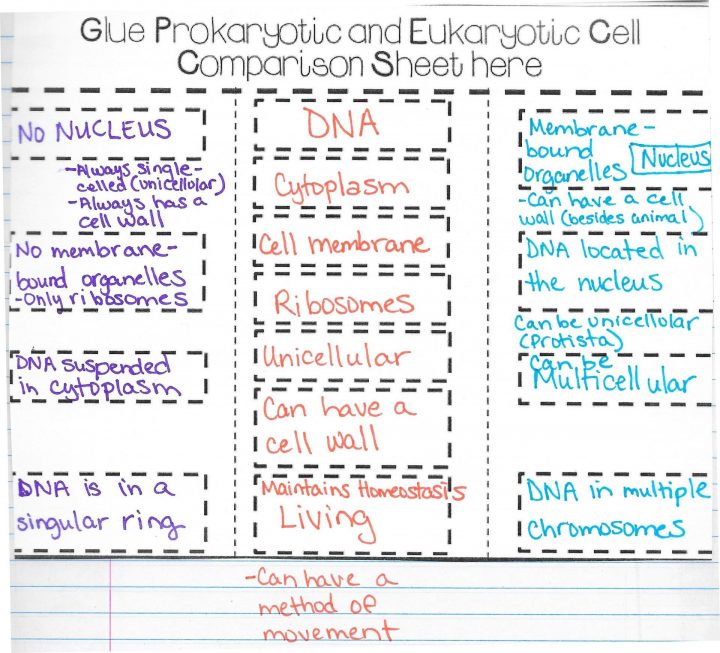 Glue Prokaryotic and Eukaryotic Cell
Comparison Sheet here
No NUCLEUS
-Always single-
celled (unicellular)
-Always has a
cell wall
No membrane-
bound organelles
-Only ribosomes
DNA suspended
in cytoplasm
DNA is in a
singular ring
DNA
Cytoplasm
Cell membrane
Ribosomes
Unicellular
Can have a
cell wall
Maintains Homeostasis
Living
-Can have a
method of
movement
Membrane-
bound
organelles
Nucleus
-Can have a cell
wall (besides animal)
DNA located in
the nucleus
Can be unicellular
(Protista)
can be
Multicellular
DNA in multiple
chromosomes